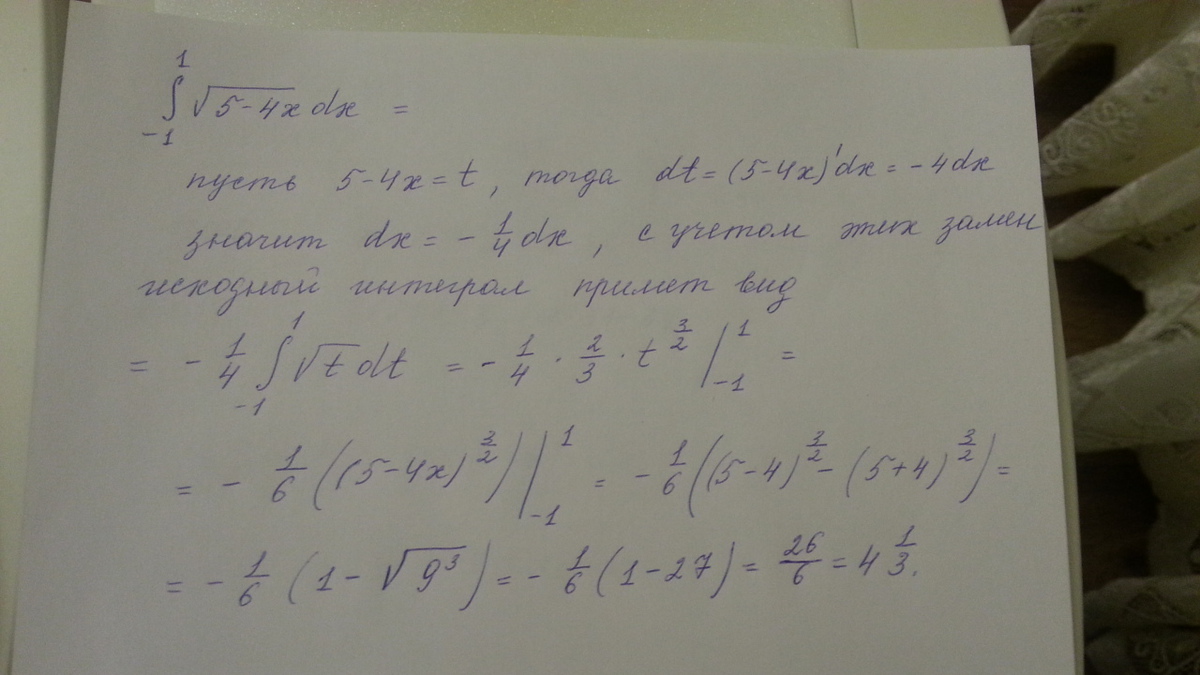 ∫₋₁¹ √(5-4x) dx =
пусть 5-4x = t, тогда dt = (5-4x)'dx = -4dx
значит dx = - 1/4 dx, с учетом этих замен
исходный интеграл примет вид
= - 1/4 ∫₋₁¹ √t dt = - 1/4 · 2/3 · t^(3/2) |₋₁¹ =
= - 1/6 ((5-4x)^(3/2)) |₋₁¹ = - 1/6 ((5-4)^(3/2) - (5+4)^(3/2)) =
= - 1/6 (1 - √(9³)) = - 1/6 (1-27) = 26/6 = 4 1/3.